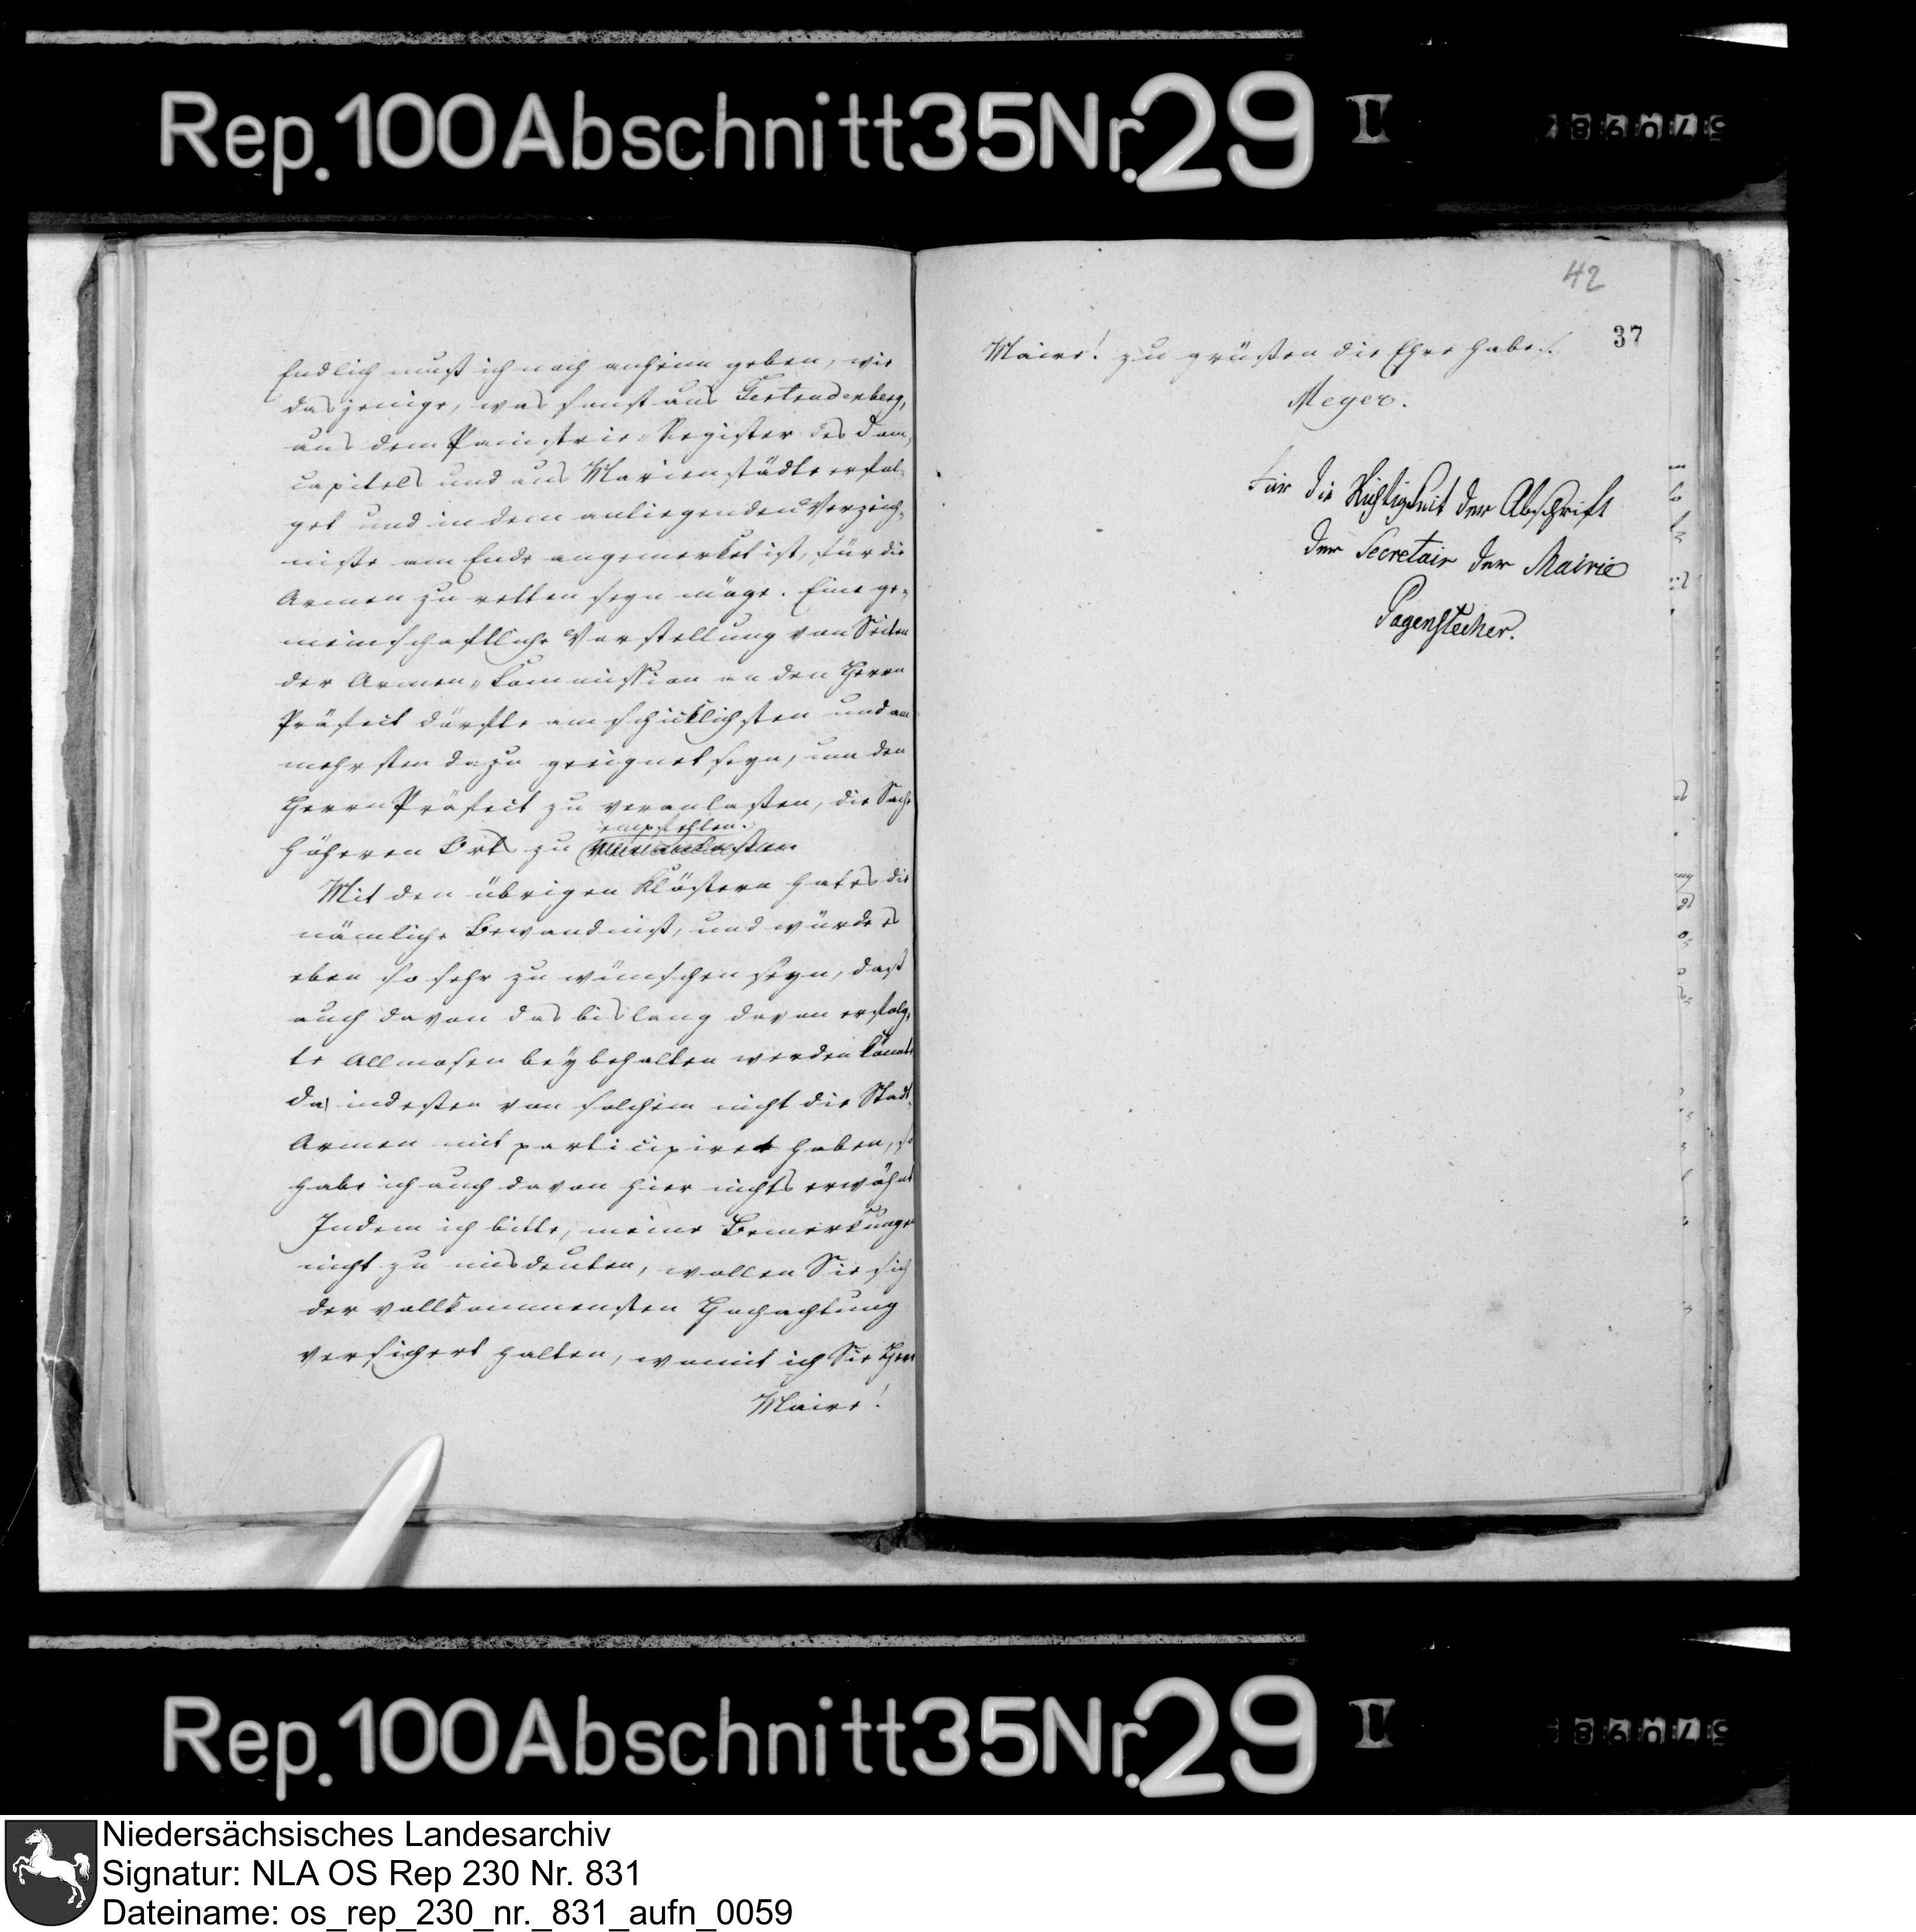 Rep. 100 Abschnitt 35 Nr. 29 II
Endlich muß ich noch anheim geben, wie
dasjenige, was sonst aus Gertrudenberg,
aus dem Register des Dom¬
capitels und aus Marienstädte erfol¬
get und in dem anliegenden Verzeich¬
niße am Ende angemerket ist, für die
Armen zu retten seyn möge. Eine ge¬
meinschaftliche Vorstellung von Seiten
der Armen-Commission an den Herrn
Präfect dürfte am schicklichsten und am
mehrsten dazu geeignet seyn, um den
Herrn Präfect zu veranlaßen, die Sache
empfehlen.
höheren Orts zu
Mit den übrigen Klöstern hat es die
nämliche Bewandniß, und würde es
eben so sehr zu wünschen seyn, daß
auch davon das bislang davon erfolg¬
te Allmosen beybehalten werden könnte
da indeßen von solchem nicht die Stadt¬
Armen mit participiret haben, so
habe ich auch davon hier nichts erwähnt
Indem ich bitte, meine Bemerkungen
nicht zu misdeuten, wollen Sie sich
der vollkommensten Hochachtung
versichert halten, womit ich Sie Herr
Maire!
42
37
Maire! zu grüßen die Ehre habe.
Meyer.
Für die Richtigkeit der Abschrift
der Secretair der Mairie
Pagenstecher.
Rep. 100 Abschnitt 35 Nr. 29 II
Niedersächsisches Landesarchiv
Signatur: NLA OS Rep 230 Nr. 831
Dateiname: os_rep_230_nr._831_aufn_0059